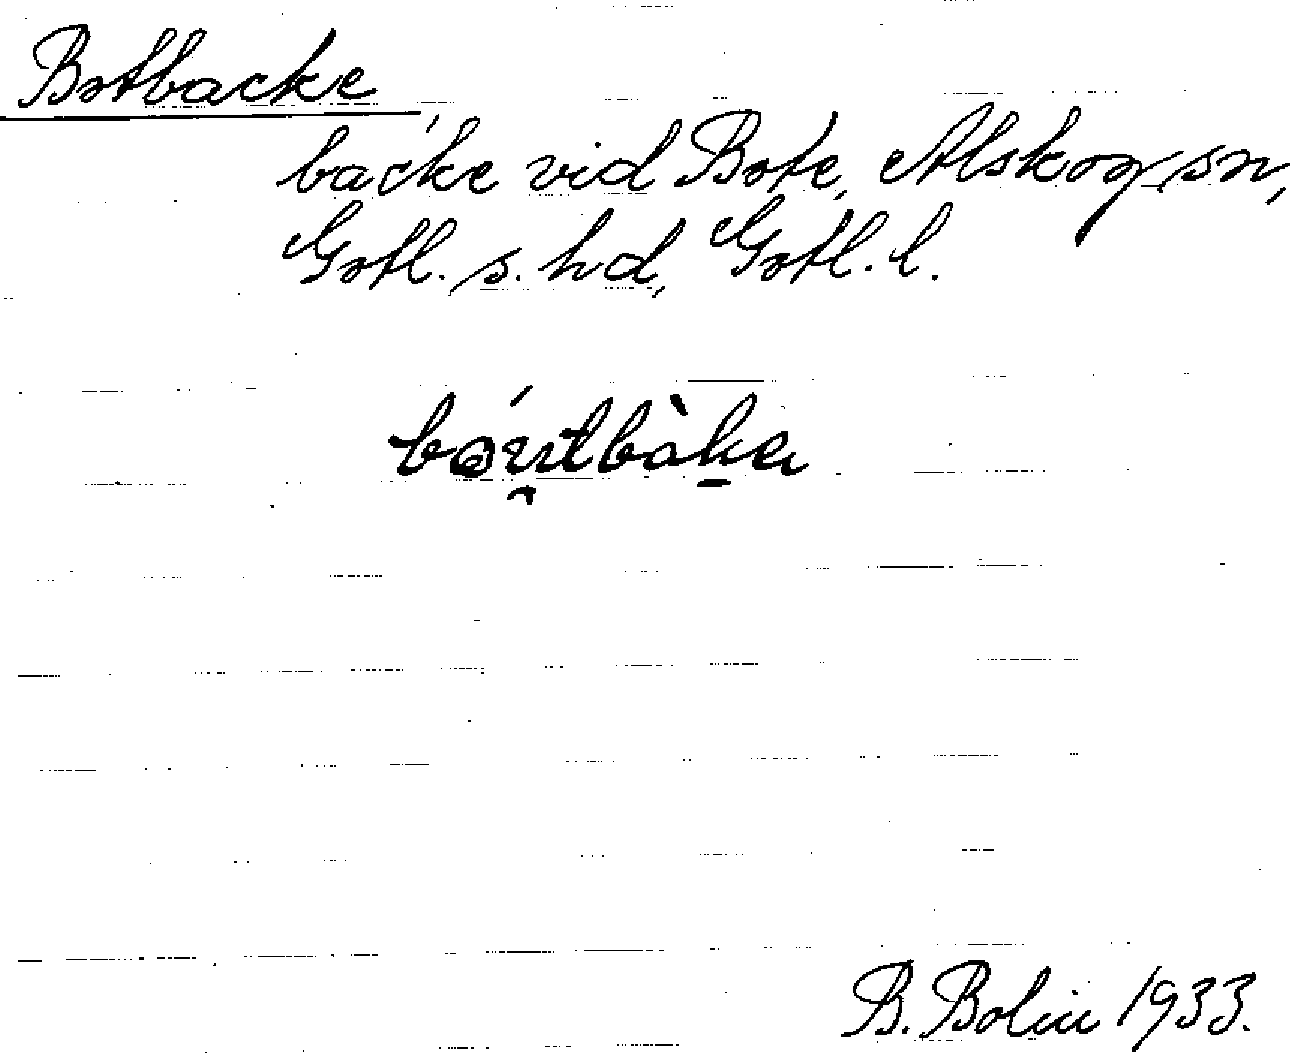 Botbacke,
backe vid Bote, Alskog sn,
Gotl. s. hd, Gotl. l.
B. Bolin 1933.